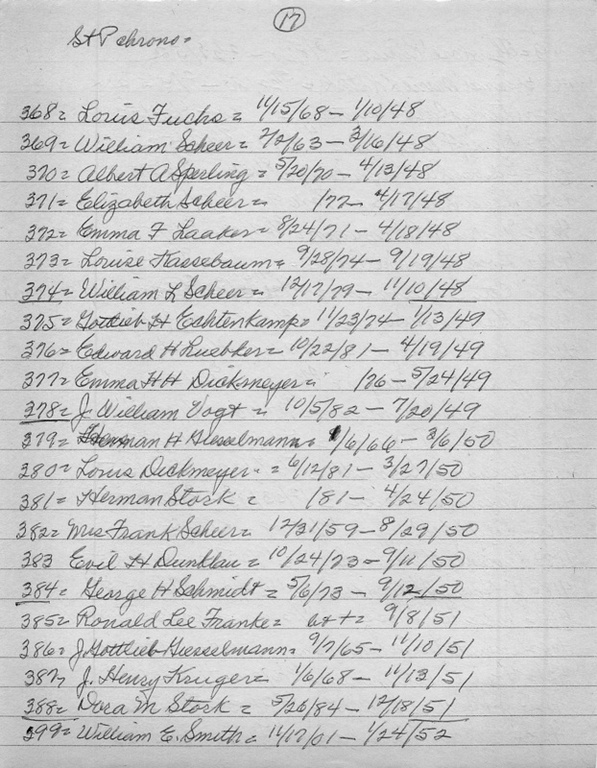 17
St P chrono=
368= Louis Fuchs = 11/15/68 - 1/10/48
369= William Scheer = 2/2/63 - 3/16/48
370= Albert A Sperling = 5/20/70 - 4/13/48
371= Elizabeth Scheer = /72 - 4/17/48
372= Emma F Laaker = 8/24/71 - 4/18/48
373= Louise Kassebaum = 9/28/74 - 9/19/48
374= William L Scheer = 12/17/79 - 11/10/48
375= Gottlieb H Echtenkamp = 11/23/74 - 1/13/49
376= Edward H Ruebker = 10/22/81 - 4/19/49
377= Emma H H Dickmeyer = /76 - 5/24/49
378= J. William Vogt = 10/5/82 - 7/20/49
379= Herman H Giesselmann = 1/6/66 - 3/6/50
380= Louis Dickmeyer = 6/12/81 - 3/27/50
381= Herman Stork = /81 - 4/24/50
382= Mrs Frank Scheer = 12/31/59 - 8/29/50
383 Evil H Dunklau = 10/24/73 - 9/11/50
384= George H Schmidt = 5/6/73 - 9/12/50
385= Ronald Lee Franke = 9/8/51
386= J Gottlieb Giesselmann = 9/7/65 - 11/10/51
387= J. Henry Kruger = 1/6/68 - 11/13/51
388= Dora M Stork = 5/26/84 - 12/18/51
399= William E. Smith = 11/17/01 - 1/24/52